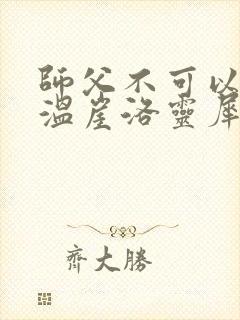 師父不可以
溫崖洛靈犀
齊大勝